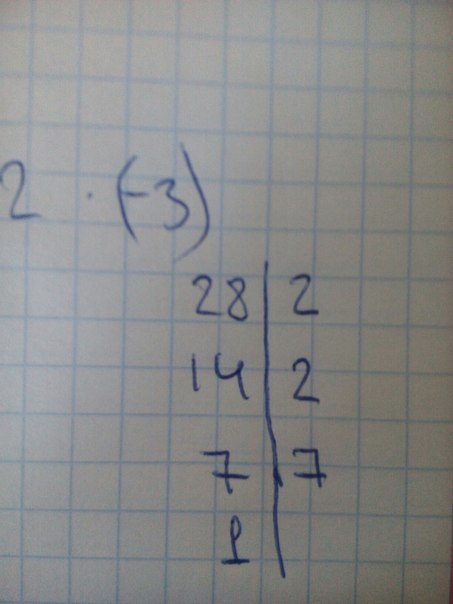 2 · (-3)
28 | 2
14 | 2
7 | 7
1 |